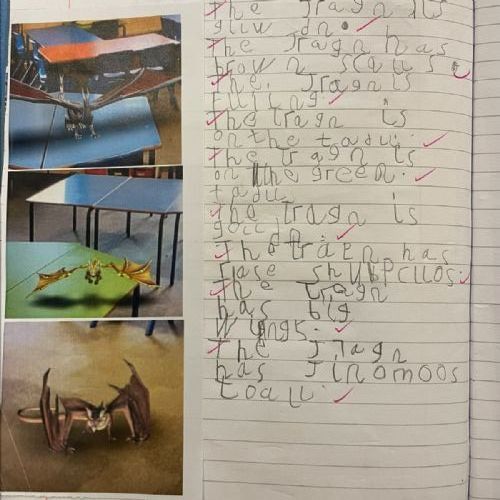 The Jragn is
gliw dn.
The Jragn has
brown scalls.
The. Jragn is
fliing.
The tragn is
on the tadll.
The tragn is
on the green.
tadll
The tragn is
goll dn.
The traen has
flase shubpcllos.
The tragn
has big
wings.
The Jragn
has Jinomoos
toall.